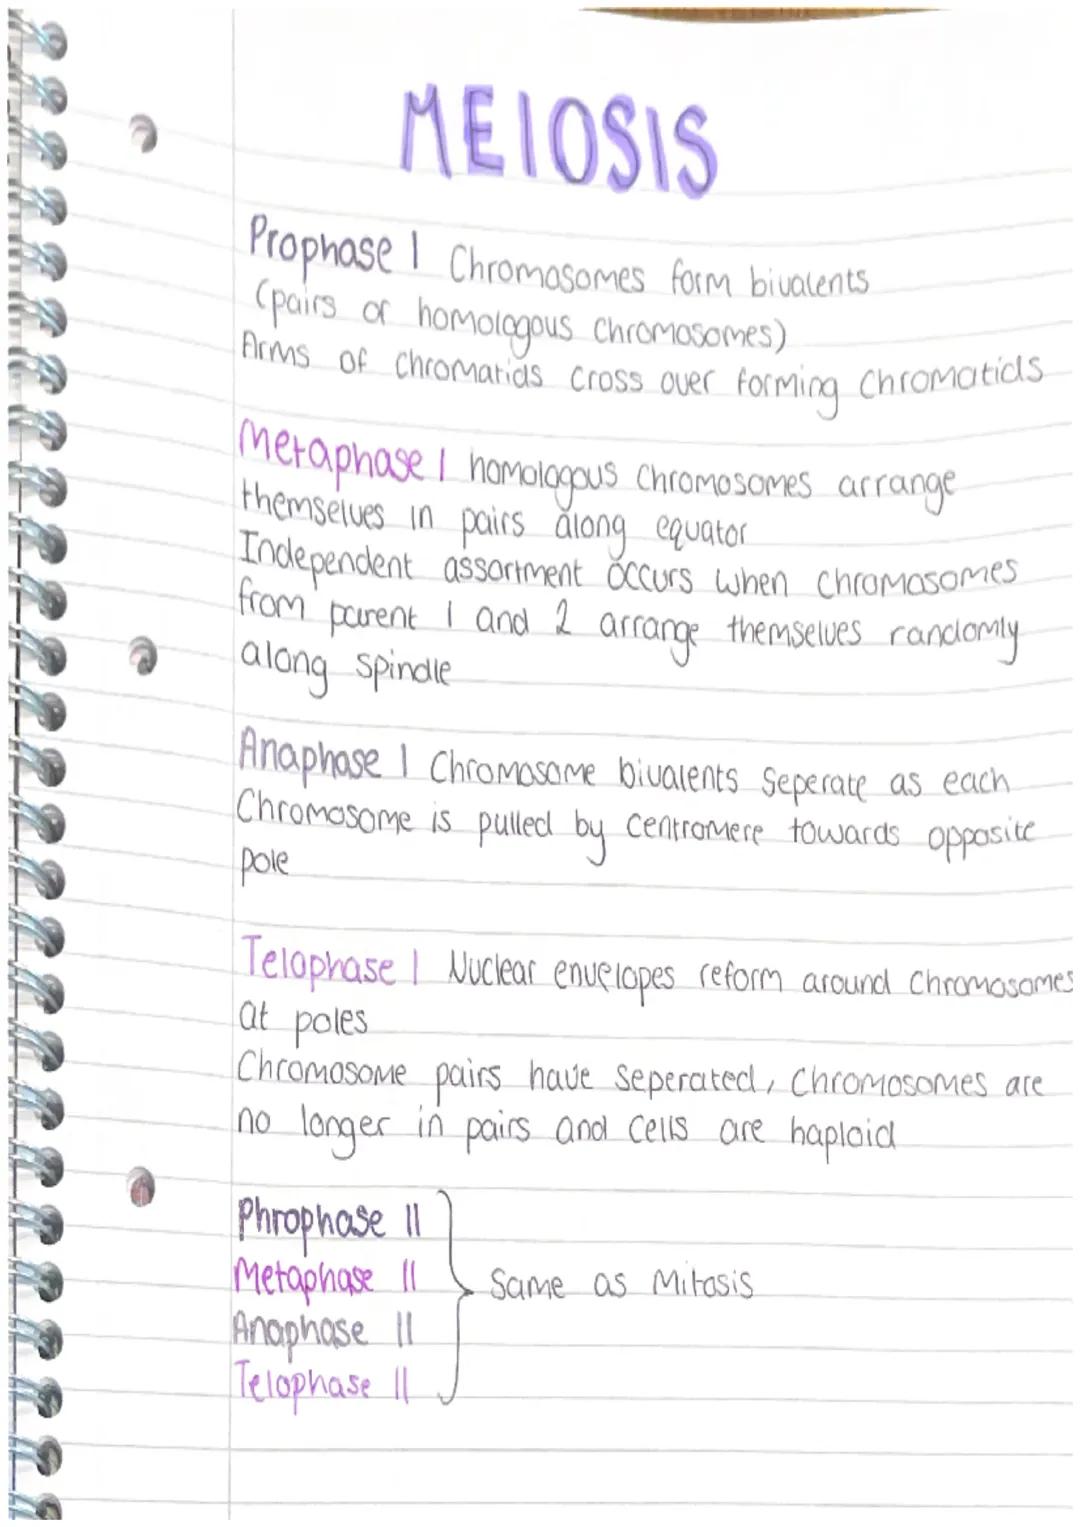 MEIOSIS
Prophase I Chromosomes form bivalents
(pairs of homologous chromosomes)
Arms of chromatids cross over forming Chromatids
Metaphase I homologous Chromosomes arrange
themselves in pairs along equator
Independent assortment occurs when chromosomes
from parent 1 and 2 arrange themselves randomly
along spindle
Anaphase I Chromosome bivalents seperate as each
Chromosome is pulled by centromere towards opposite
pole
Telophase I Nuclear envelopes reform around Chromosomes
at poles
Chromosome pairs have seperated, Chromosomes are
no longer in pairs and cells are haploid
Phrophase II
Metaphase II
Anaphase II
Telophase II
Same as Mitosis